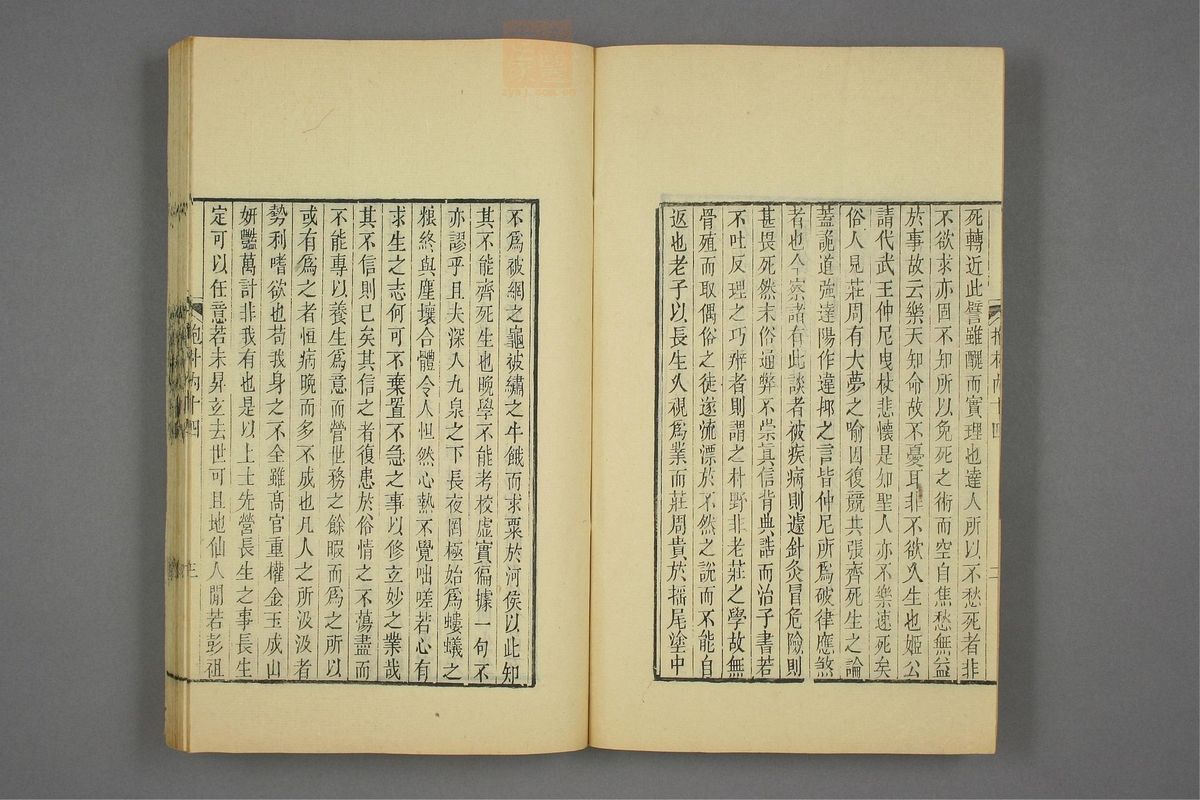 死轉近此譬雖醜而實理也達人所以不愁死者非
不欲求亦固不知所以免死之術而空自焦愁無益
於事故云樂天知命故不憂耳非不欲久生也姬公
請代武王仲尼曳杖悲懷是知聖人亦不樂速死矣
俗人見莊周有大夢之喻因復競共張齊死生之論
蓋詭道強達陽作違抑之言皆仲尼所為破律應煞
者也今察諸有此談者被疾病則遽針灸冒危險則
甚畏死然末俗通弊不崇真信背典誥而治子書若
不吐反理之巧辨者則謂之朴野非老莊之學故無
骨殖而取偶俗之徒遂流漂於不然之說而不能自
返也老子以長生久視爲業而莊周貴於搖尾塗中
抱朴內十四
二
不爲被網之龜被繡之牛餓而求粟於河侯以此知
其不能齊死生也晚學不能考校虛實偏據一句不
亦謬乎且夫深入九泉之下長夜罔極始爲螻蟻之
糧終與塵壤合體令人怛然心熱不覺咄嗟若心有
求生之志何可不棄置不急之事以修玄妙之業哉
其不信則已矣其信之者復患於俗情之不蕩盡而
不能專以養生爲意而營世務之餘暇而爲之所以
或有爲之者恒病晚而多不成也凡人之所汲汲者
勢利嗜欲也苟我身之不全雖高官重權金玉成山
妍豔萬計非我有也是以上士先營長生之事長生
定可以任意若未昇玄去世可且地仙人閒若彭祖
抱朴內十四
三